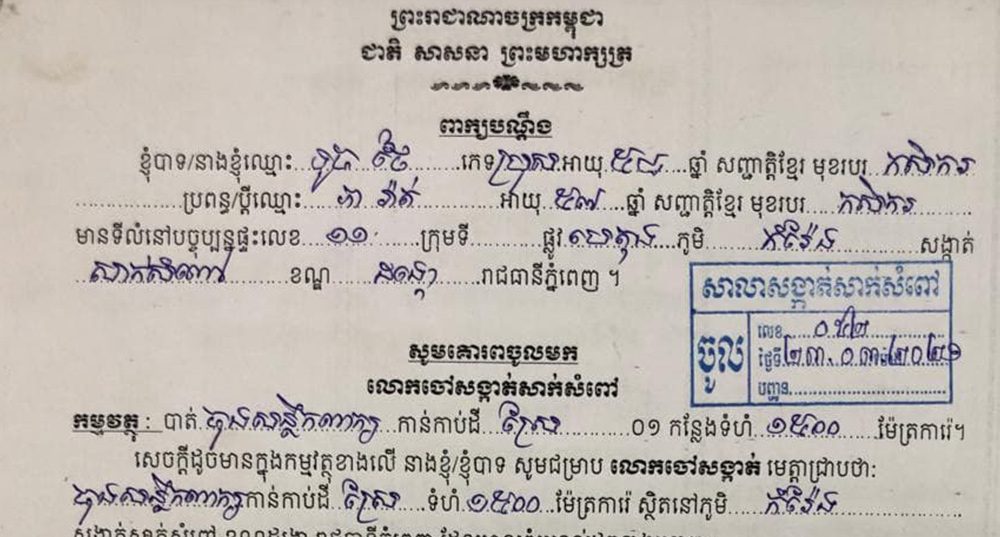 ព្រះរាជាណាចក្រកម្ពុជា
ជាតិ សាសនា ព្រះមហាក្សត្រ
ពាក្យបណ្តឹង
ខ្ញុំបាទ/នាងខ្ញុំឈ្មោះ ភេទ ប្រុស អាយុ ៥៨ ឆ្នាំ សញ្ជាតិខ្មែរ មុខរបរ កសិករ
ប្រពន្ធ/ប្តីឈ្មោះ អាយុ ៥៧ ឆ្នាំ សញ្ជាតិខ្មែរ មុខរបរ កសិករ
មានទីលំនៅបច្ចុប្បន្នផ្ទះលេខ ១១ ក្រុមទី ផ្លូវ បេតុង ភូមិ សង្កាត់
សាក់សំពៅ ខណ្ឌ ដង្កោ រាជធានីភ្នំពេញ ។
សាលាសង្កាត់សាក់សំពៅ
ចូល
លេខ ០៥២
ថ្ងៃទី ២៣.០៣.២០២១
បញ្ជូន
សូមគោរពចូលមក
លោកចៅសង្កាត់សាក់សំពៅ
កម្មវត្ថុ : បាត់ កាន់កាប់ដី ស្រែ ០១ កន្លែងទំហំ ១៥០០ ម៉ែត្រការ៉េ។
សេចក្តីដូចមានក្នុងកម្មវត្ថុខាងលើ នាងខ្ញុំ/ខ្ញុំបាទ សូមជម្រាប លោកចៅសង្កាត់ មេត្តាជ្រាបថា:
កាន់កាប់ដី ស្រែ ទំហំ ១៥០០ ម៉ែត្រការ៉េ ស្ថិតនៅភូមិ